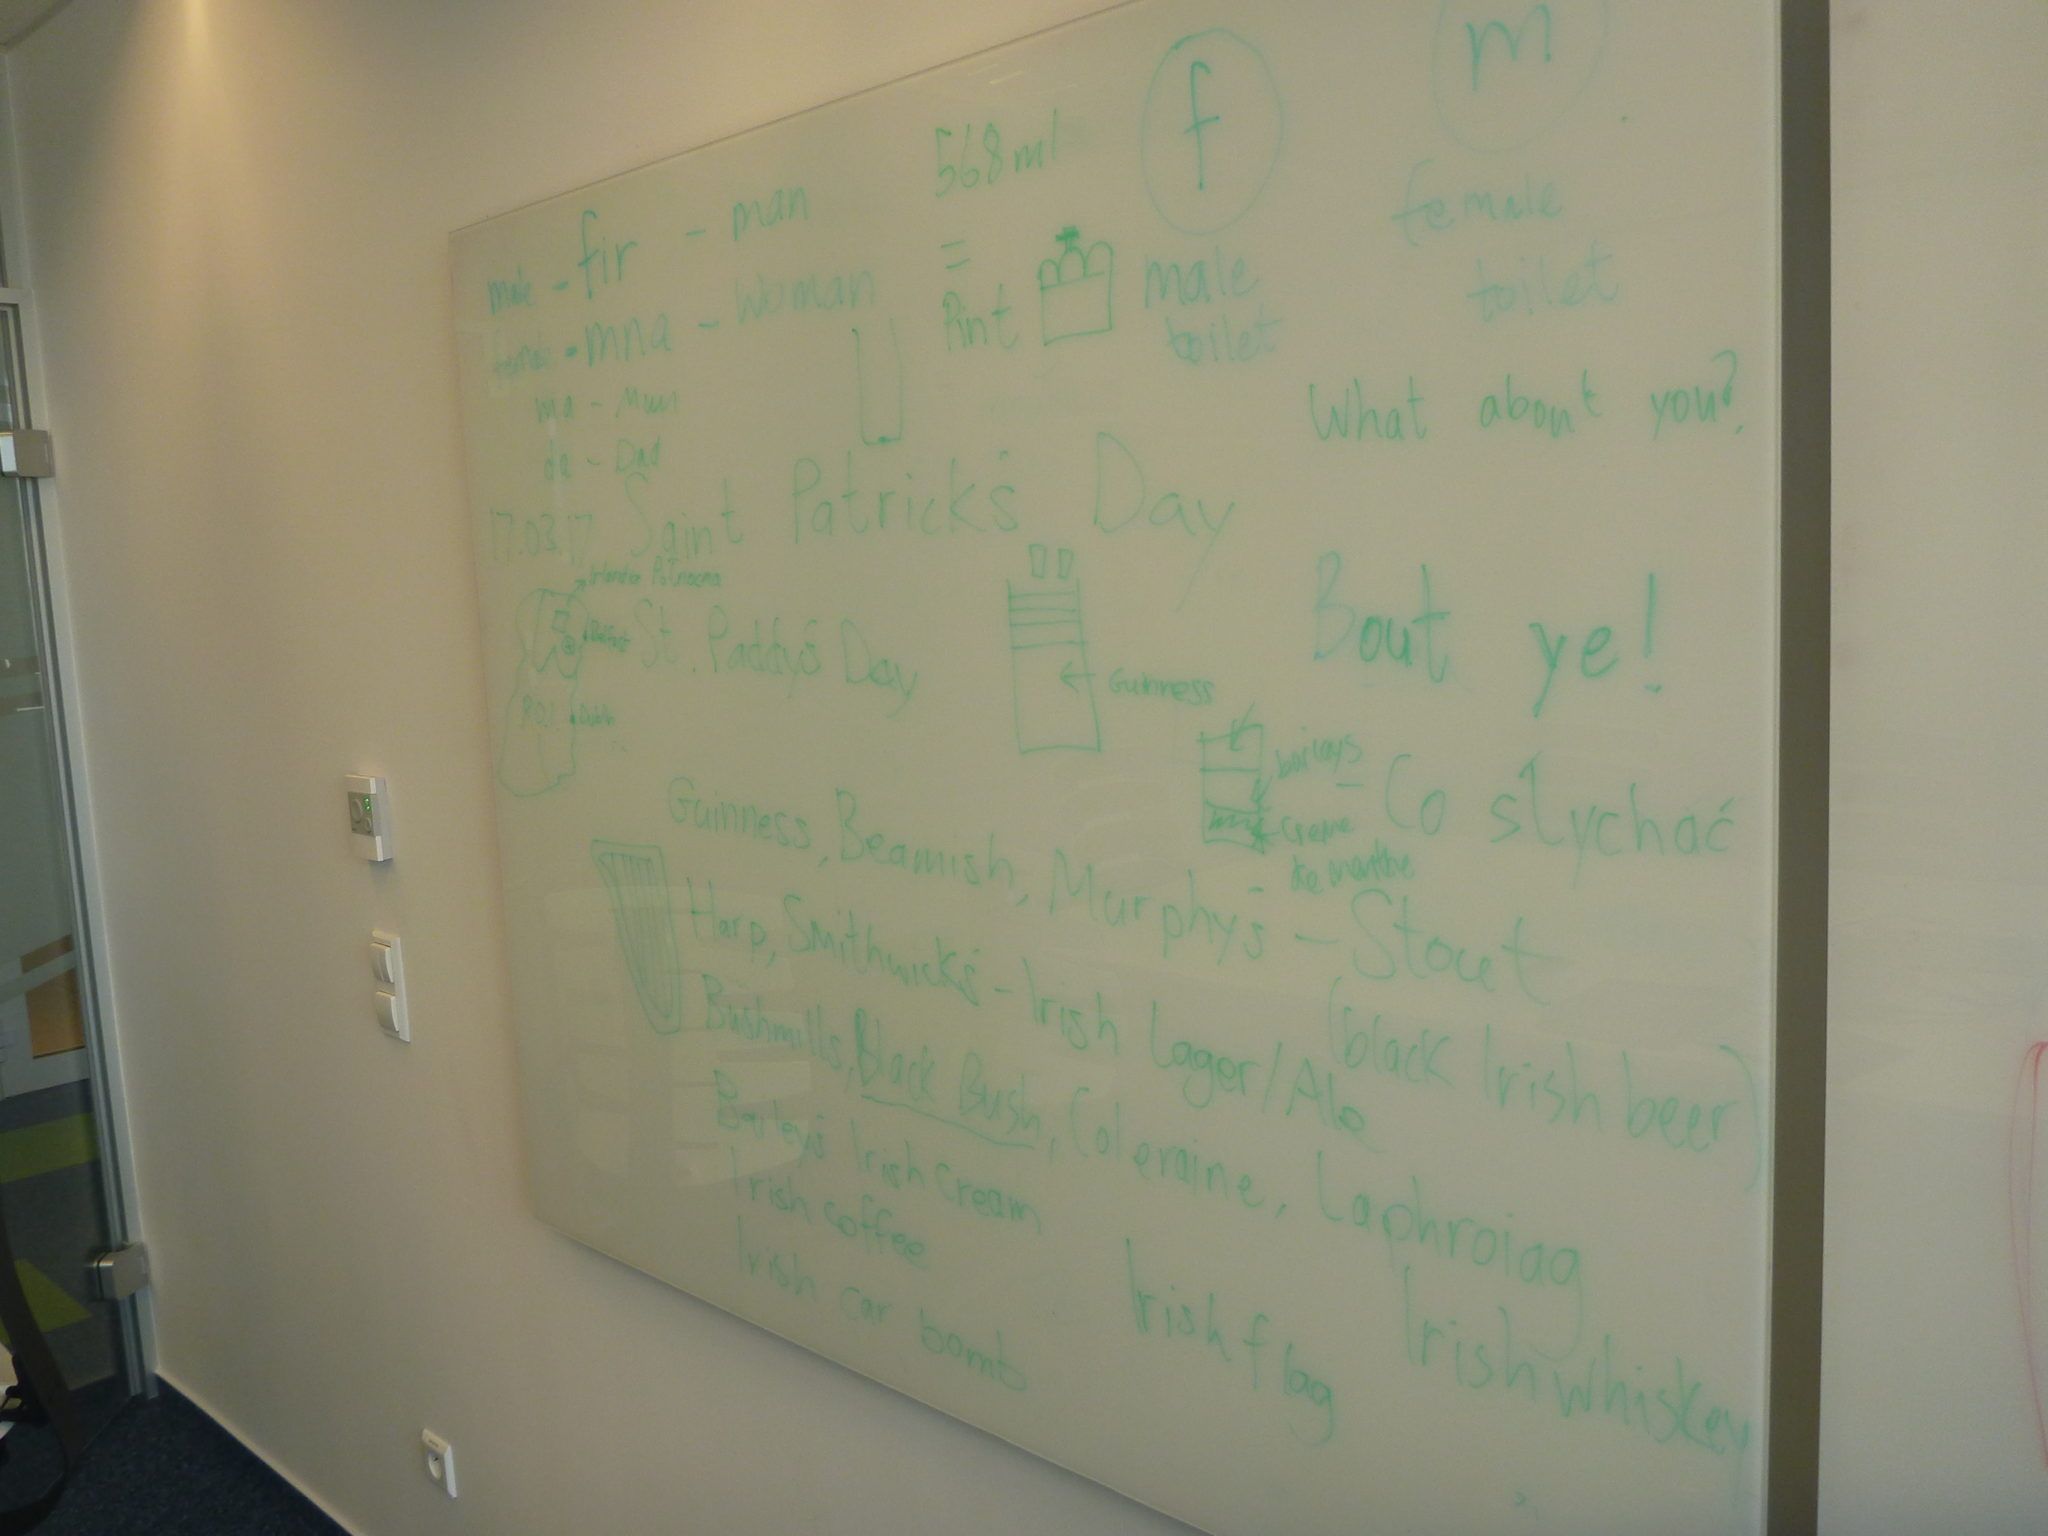 male - fir - man
female - mna - woman
ma - Mum
da - Dad
568 ml
=
Pint
f
male
toilet
m
female
toilet
What about you?
17.03.17 Saint Patrick's Day
Irlandia Północna
Belfast
St. Paddy's Day
R.O.I. Dublin
Guinness
Bout ye!
baileys
creme
de menthe
- Co słychać
Guinness, Beamish, Murphy's - Stout
(black Irish beer)
Harp, Smithwick's - Irish Lager/Ale
Bushmills, Black Bush, Coleraine, Laphroiag
Irish whiskey
Bailey's Irish Cream
Irish coffee
Irish car bomb
Irish flag